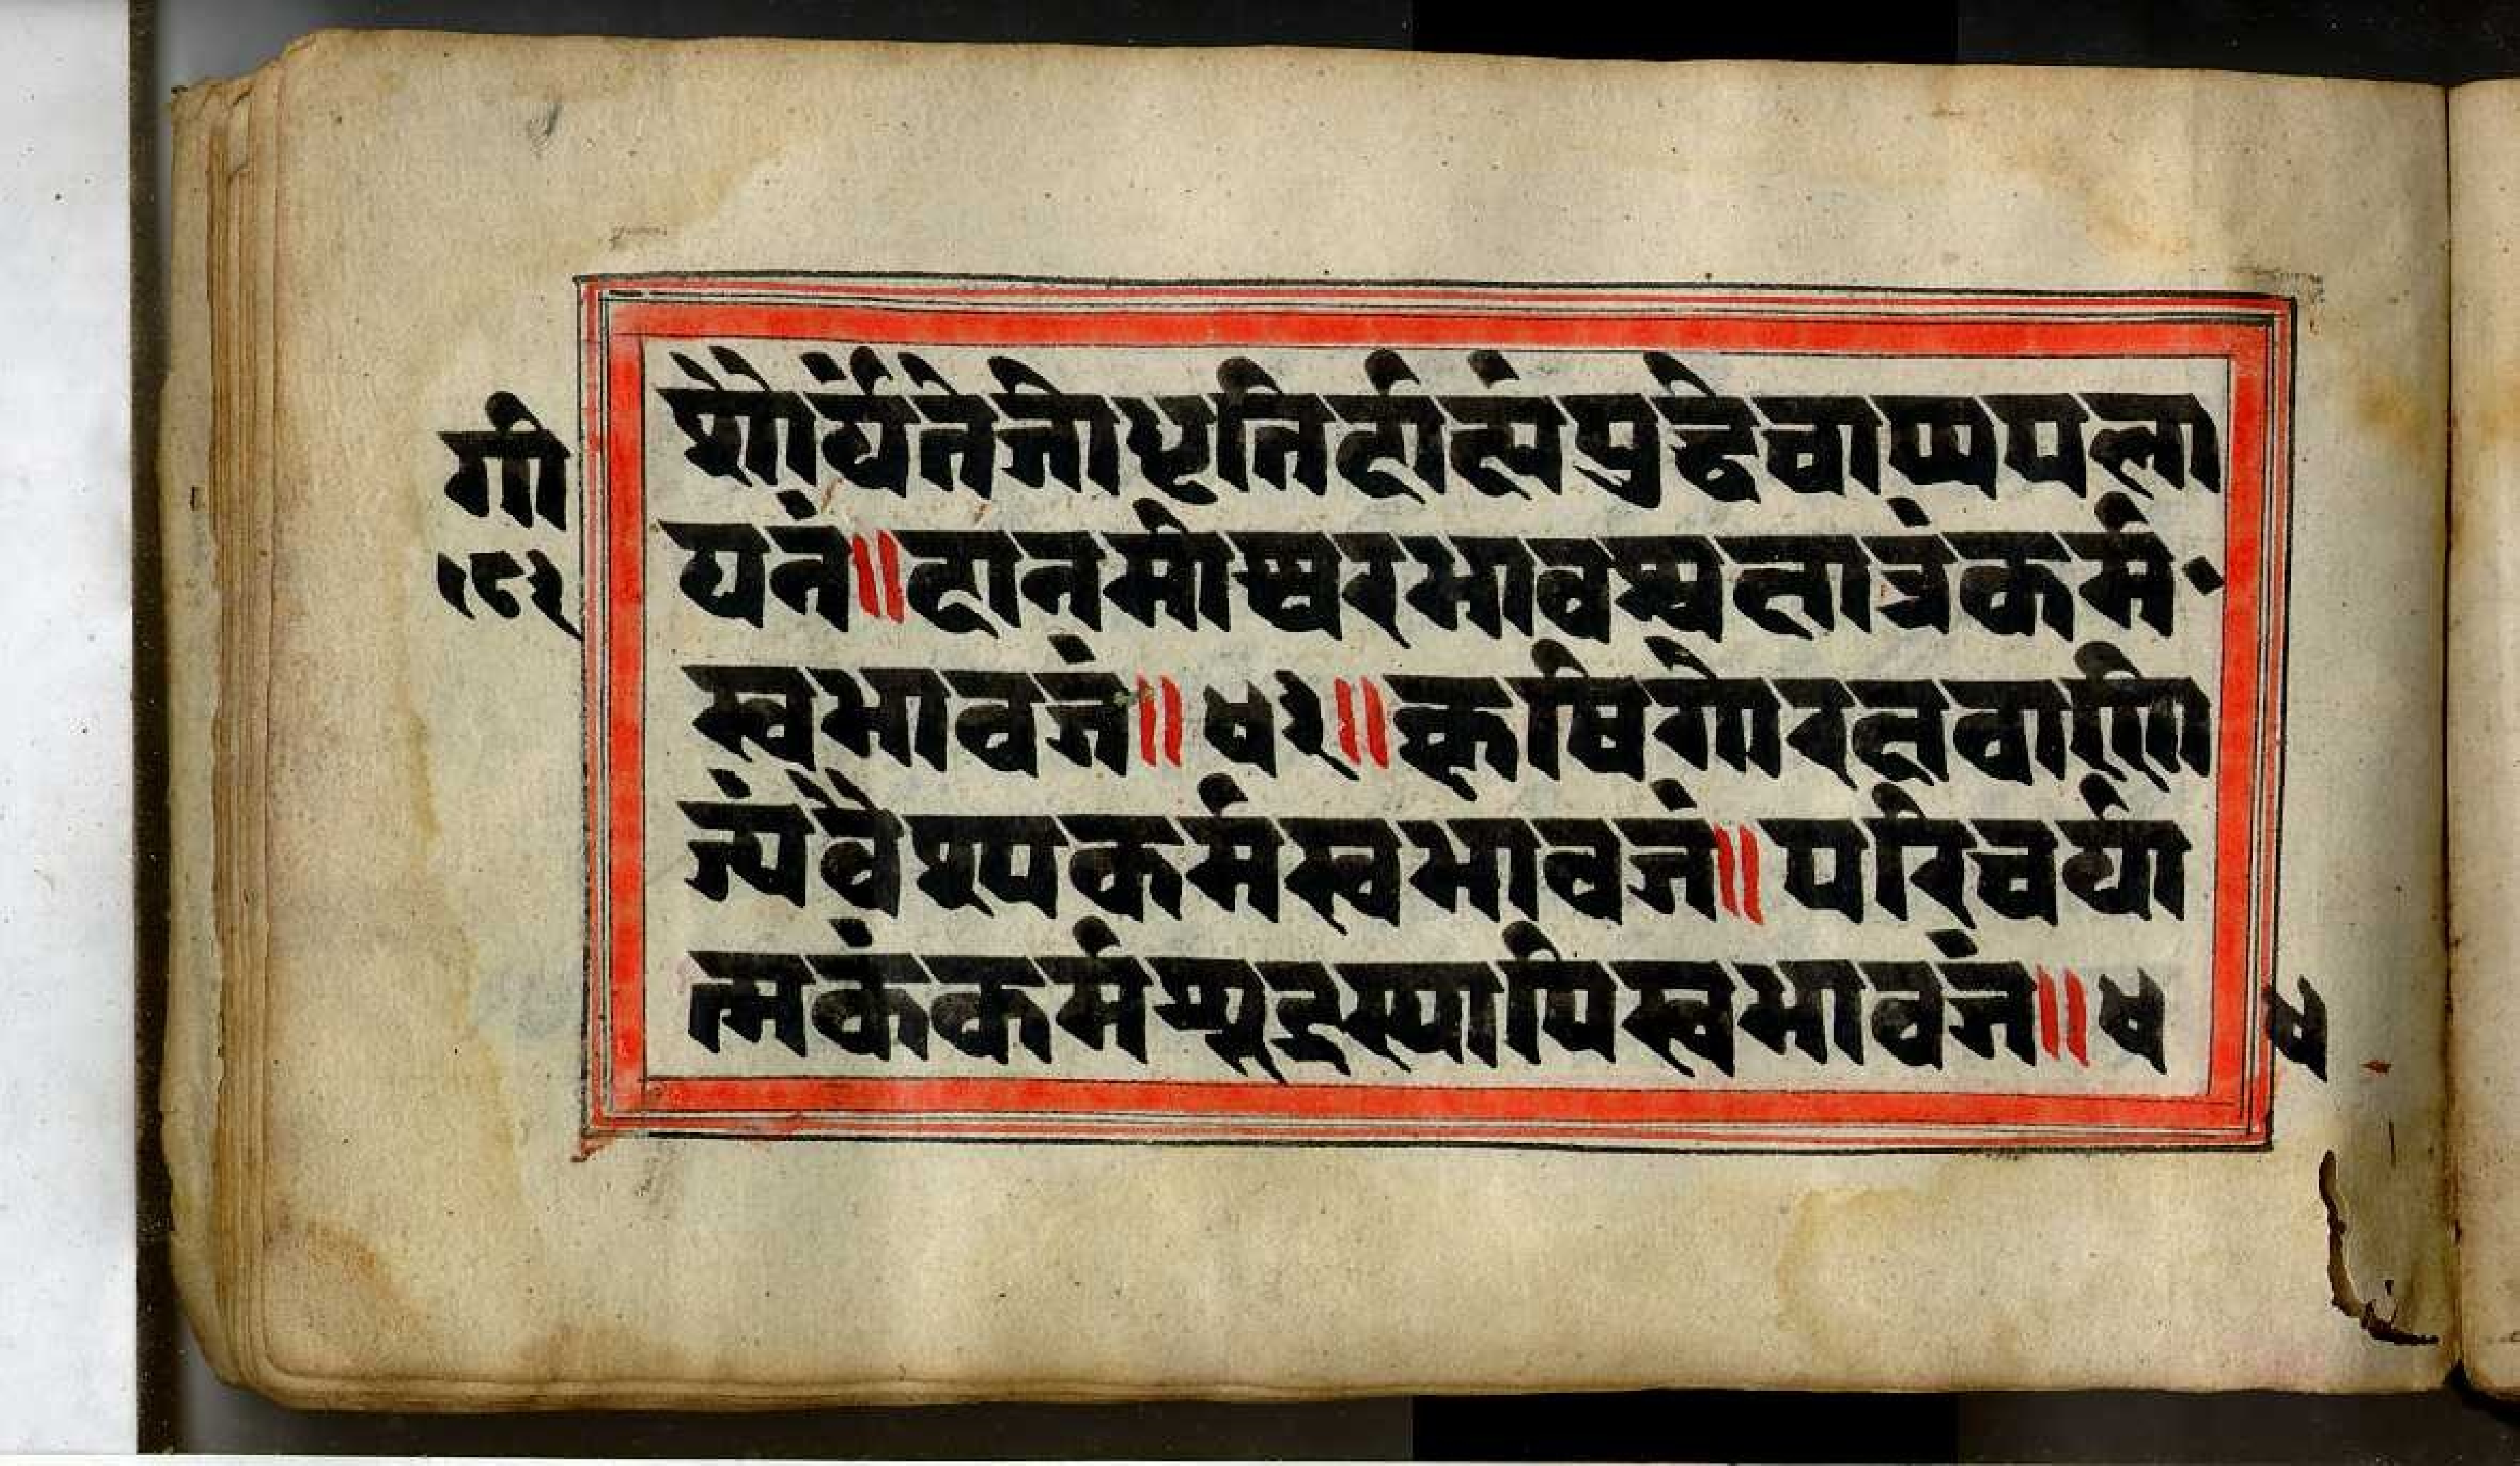 गी
१८२
शौर्यंतेजोधृतिर्दाक्ष्यंयुद्धेचाप्यपला
यनं॥दानमीश्वरभावश्चक्षात्रंकर्म
स्वभावजं॥४३॥कृषिगोरक्षवाणि
ज्यंवैश्यकर्मस्वभावजं॥परिचर्या
त्मकंकर्मशूद्रस्यापिस्वभावजं॥४
४